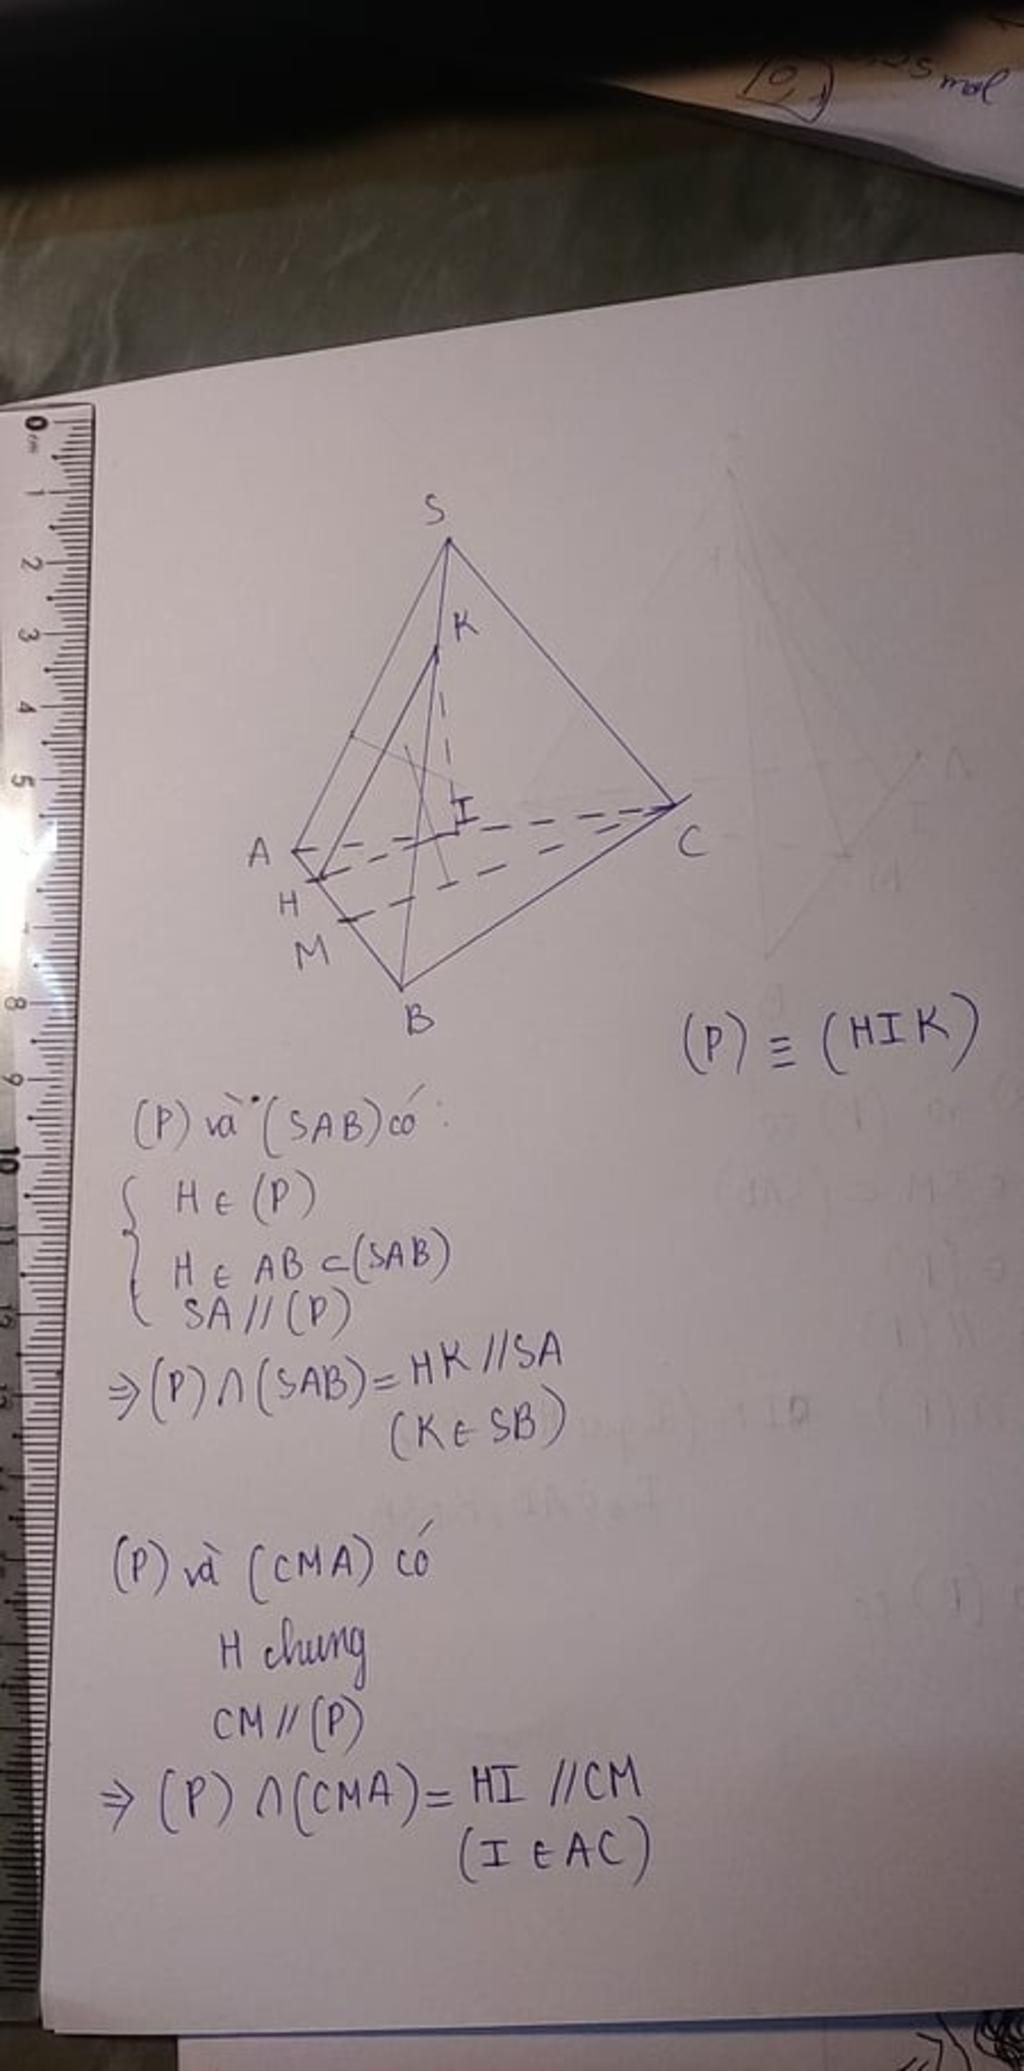 mol
0
cm
1
2
3
4
5
8
9
10
11
S
K
I
A
C
H
M
B
(P) ≡ (HIK)
(P) và (SAB) có:
H ∈ (P)
H ∈ AB ⊂ (SAB)
SA // (P)
⇒ (P) ∩ (SAB) = HK // SA
(K ∈ SB)
(P) và (CMA) có
H chung
CM // (P)
⇒ (P) ∩ (CMA) = HI // CM
(I ∈ AC)